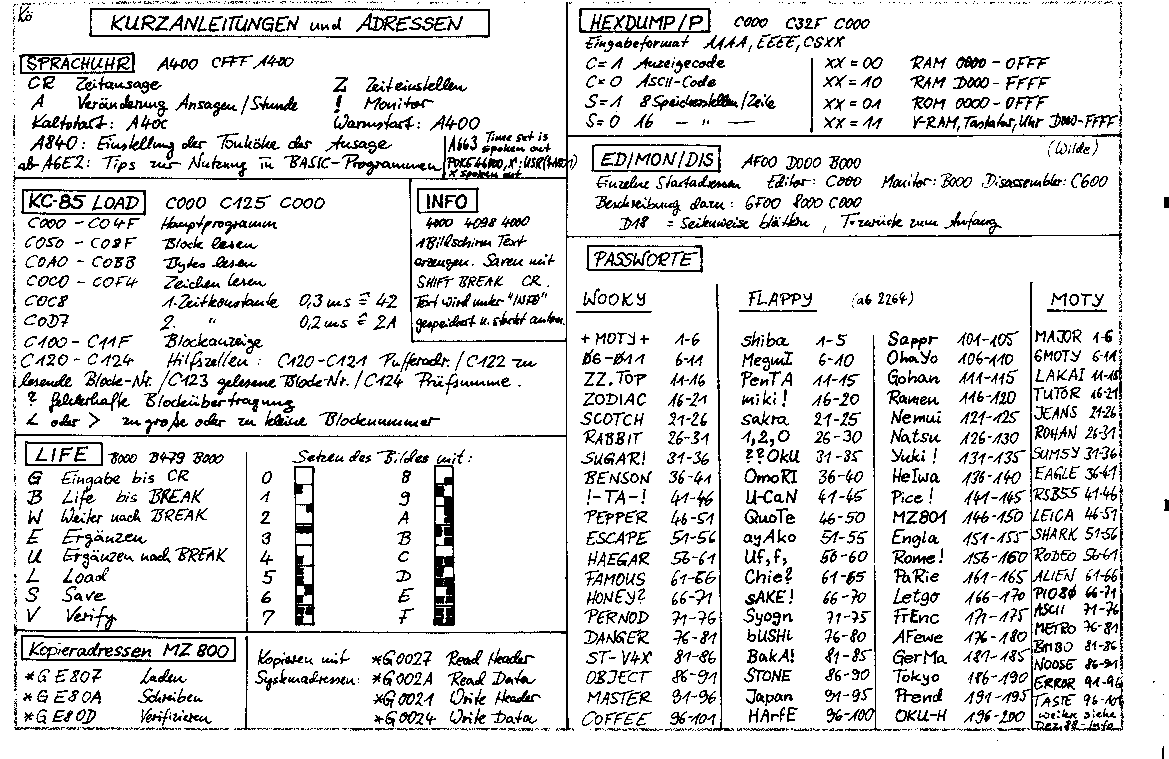 Kö
KURZANLEITUNGEN und ADRESSEN
SPRACHUHR A400 CFFF A400
CR Zeitansage Z Zeiteinstellen
A Veränderung Ansagen/Stunde ! Monitor
Kaltstart: A40C Warmstart: A400
A840: Einstellung der Tonhöhe der Ansage
ab A6E2: Tips zur Nutzung in BASIC-Programmen
A663 Time set is
spoken out
X spoken out
KC-85 LOAD C000 C125 C000
C000 - C04F Hauptprogramm
C050 - C08F Block lesen
C0A0 - C0BB Bytes lesen
C0C0 - C0F4 Zeichen lesen
C0C8 1. Zeitkonstante 0,3 ms ≙ 42
C0D7 2. " 0,2 ms ≙ 2A
C100 - C11F Blockanzeige
C120 - C124 Hilfszellen: C120-C121 Pufferadr./C122 zu
lesende Block-Nr./C123 gelesene Block-Nr./C124 Prüfsumme.
? fehlerhafte Blockübertragung
< oder > zu große oder zu kleine Blocknummer
INFO
4000 4098 4000
1 Bildschirm Text
erzeugen. Saven mit
SHIFT BREAK CR.
Text wird unter "INFO"
gespeichert u. startet autom.
LIFE B000 B479 B000 Setzen des Bildes mit:
G Eingabe bis CR
B Life bis BREAK
W Weiter nach BREAK
E Ergänzen
U Ergänzen nach BREAK
L Load
S Save
V Verify
0 8
1 9
2 A
3 B
4 C
5 D
6 E
7 F
Kopieradressen MZ 800
*G E807 Laden
*G E80A Schreiben
*G E80D Verifizieren
Kopieren mit *G0027 Read Header
Systemadressen: *G002A Read Data
*G0021 Write Header
*G0024 Write Data
HEXDUMP/P C000 C32F C000
Eingabeformat AAAA, EEEE, CSXX
C=1 Anzeigecode XX=00 RAM 0000-0FFF
C=0 ASCII-Code XX=10 RAM D000-FFFF
S=1 8 Speicherstellen/Zeile XX=01 ROM 0000-0FFF
S=0 16 — " — XX=11 V-RAM, Tastatur, Uhr D000-FFFF
ED/MON/DIS AF00 D000 B000 (Wilde)
Einzelne Startadressen Editor: C000 Monitor: B000 Disassembler: C600
Beschreibung dazu: 6F00 8000 C000
D18 = Seitenweise blättern, T-zurück zum Anfang
PASSWORTE
WOOKY
+MOTY+ 1-6
06-011 6-11
ZZ.TOP 11-16
ZODIAC 16-21
SCOTCH 21-26
RABBIT 26-31
SUGAR! 31-36
BENSON 36-41
!-TA-! 41-46
PEPPER 46-51
ESCAPE 51-56
HAEGAR 56-61
FAMOUS 61-66
HONEY? 66-71
PERNOD 71-76
DANGER 76-81
ST-V4X 81-86
OBJECT 86-91
MASTER 91-96
COFFEE 96-101
FLAPPY (ab 2264)
shiba 1-5
MegmI 6-10
PenTA 11-15
miki! 16-20
sakra 21-25
1,2,0 26-30
??OkU 31-35
OmoRI 36-40
U-CaN 41-45
QuoTe 46-50
ayAko 51-55
Uf,f, 56-60
Chie? 61-65
sAKE! 66-70
Syogn 71-75
bUSHi 76-80
BakA! 81-85
STONE 86-90
Japan 91-95
HArfE 96-100
Sappr 101-105
OhaYo 106-110
Gohan 111-115
Ramen 116-120
Nemui 121-125
Natsu 126-130
Yuki! 131-135
HeIwa 136-140
Pice! 141-145
MZ801 146-150
Engla 151-155
Rome! 156-160
PaRie 161-165
Letgo 166-170
FrEnc 171-175
AFewe 176-180
GerMa 181-185
Tokyo 186-190
Prend 191-195
OKU-H 196-200
MOTY
MAJOR 1-6
GMOTY 6-11
LAKAI 11-16
TUTOR 16-21
JEANS 21-26
ROHAN 26-31
SUMSY 31-36
EAGLE 36-41
RSB55 41-46
LEICA 46-51
SHARK 51-56
RODEO 56-61
ALIEN 61-66
PIO80 66-71
ASCII 71-76
METRO 76-81
BMBO 81-86
NOOSE 86-91
ERROR 91-96
TASTE 96-101
weiter siehe
Dez.88-Info